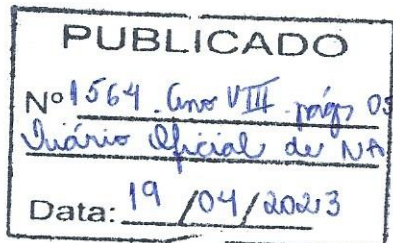 PUBLICADO
Nº 1564 . Ano VIII . pág 05
Diário Oficial de NA
Data: 19 / 04 / 2023